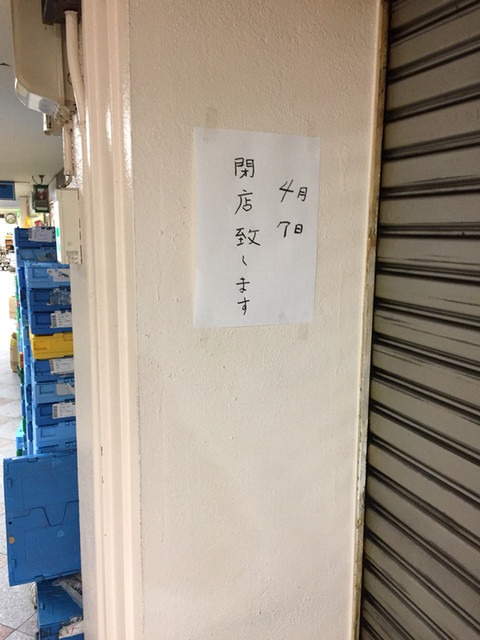 4月7日
閉店致します